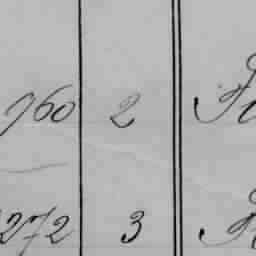 760 2
272 3